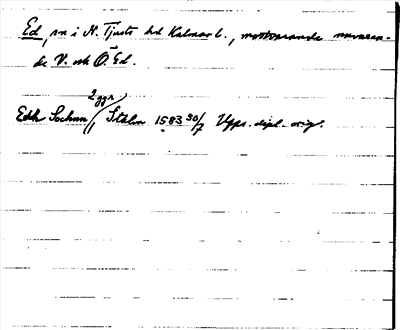 Ed, sn i N. Tjusts hd Kalmar l., motsvarande nuvaran-
de V. och Ö. Ed.
2 ggr
Edh Sochnn // Sthlm 1583 30/7 Upps. dipl. orig.